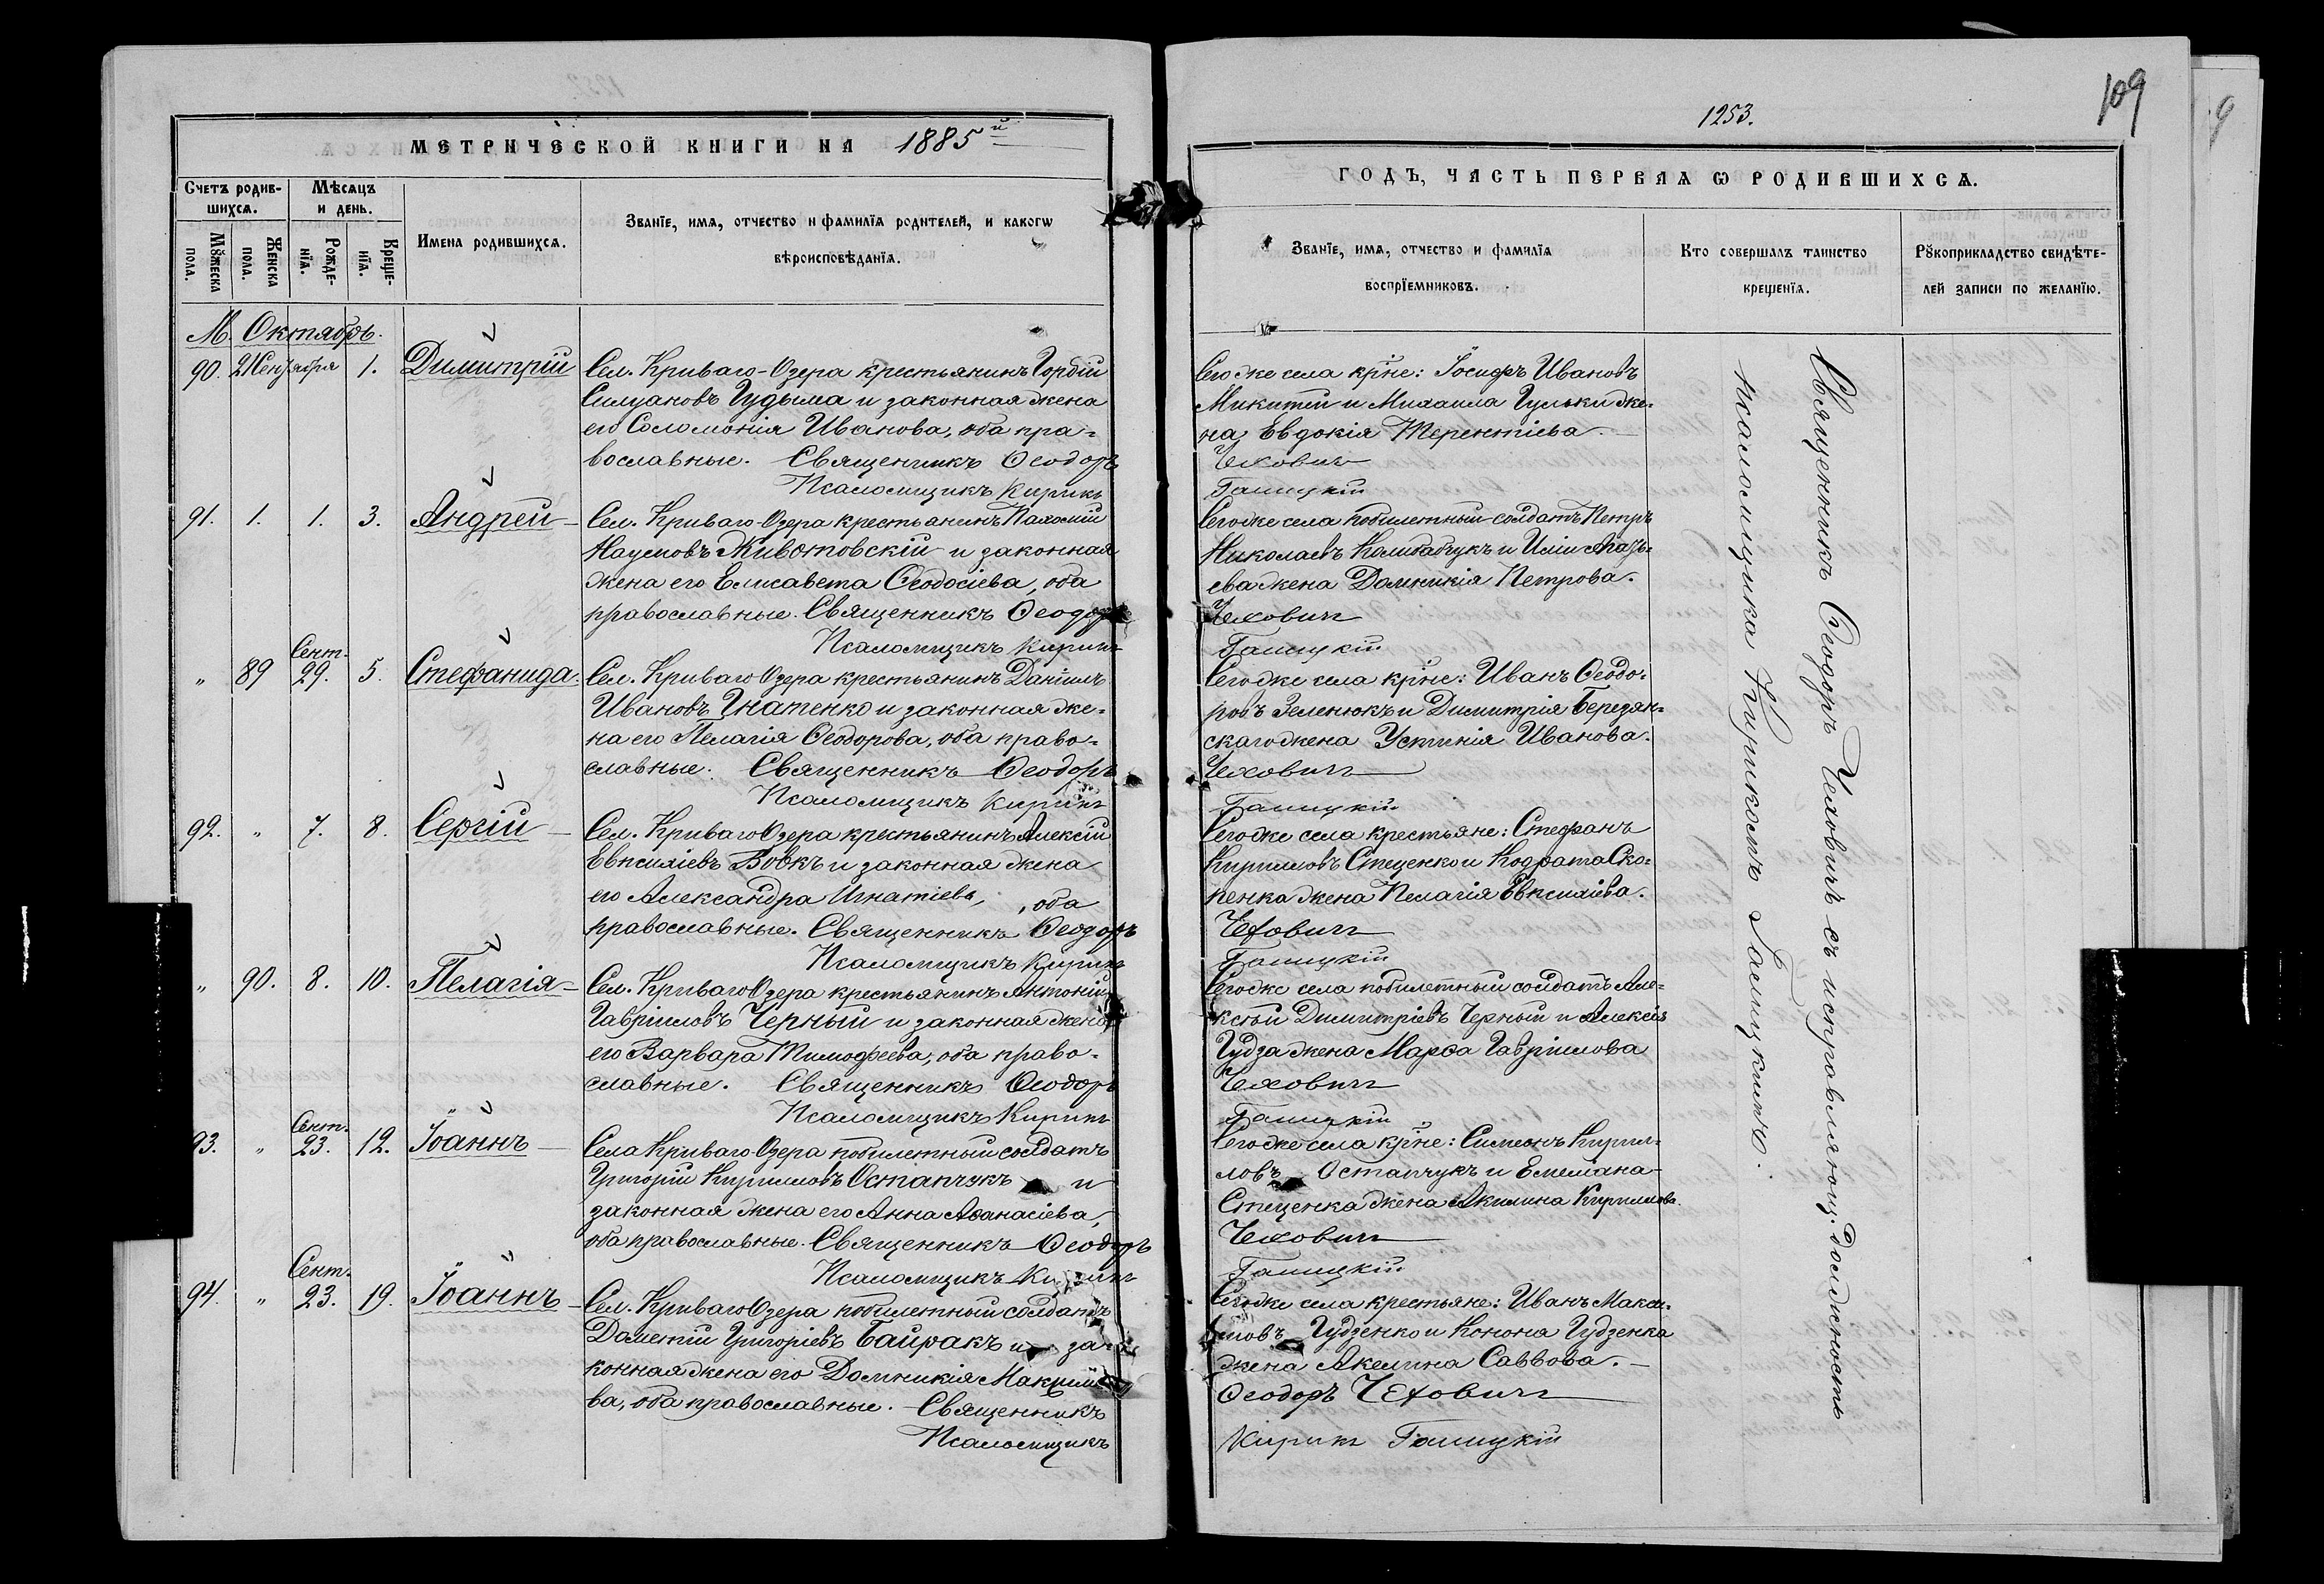 МЕТРИЧЕСКОЙ КНИГИ НА 1885й
Счетъ родив-
шихсѧ.
Мѣсѧцъ
и день.
Мꙋжеска
пола.
Женска
пола.
Рожде-
нїѧ.
Креще-
нїѧ.
Имена родившихсѧ.
Званїе, имѧ, отчество и фамилїѧ родителей, и какогѡ
вѣроисповѣданїѧ.
М. Октябрь.
90. 21 Сентября 1. Димитрій Сел. Криваго-Озера крестьянинъ Гордій
Силуановъ Гудыма и законная жена
его Соломонія Иванова, оба пра-
вославные. Священникъ Ѳеодоръ
Псаломщикъ Кирикъ
91. 1. 1. 3. Андрей Сел. Криваго-Озера крестьянинъ Пахомій
Наумовъ Животовскій и законная
жена его Елисавета Ѳеодосіева, оба
православные. Священникъ Ѳеодоръ
Псаломщикъ Кирикъ
" 89 Сент. 29. 5. Стефанида. Сел. Криваго Озера крестьянинъ Даніилъ
Ивановъ Игнатенко и законная же-
на его Пелагія Ѳеодорова, оба право-
славные. Священникъ Ѳеодоръ
Псаломщикъ Кирикъ
92. " 7. 8. Сергій Сел. Криваго Озера крестьянинъ Алексій
Евѳиміевъ Вовкъ и законная жена
его Александра Игнатіева, оба
православные. Священникъ Ѳеодоръ
Псаломщикъ Кирикъ
" 90. 8. 10. Пелагія Сел. Криваго Озера крестьянинъ Антоній
Гавриловъ Черный и законная жена
его Варвара Тимофеева, оба право-
славные. Священникъ Ѳеодоръ
Псаломщикъ Кирикъ
93. " Сент. 23. 12. Іоаннъ Села Криваго-Озера побилетный солдатъ
Григорій Кирилловъ Остапчукъ и
законная жена его Анна Аѳанасіева,
оба православные. Священникъ Ѳеодоръ
Псаломщикъ Кирикъ
94. " Сент. 23. 19. Іоаннъ Сел. Криваго Озера побилетный солдатъ
Дометій Григоріевъ Байракъ и за-
конная жена его Домникія Максимо-
ва, оба православные. Священникъ
Псаломщикъ
1253.
109
ГОДЪ, ЧАСТЬ ПЕРВАѦ Ѡ РОДИВШИХСѦ.
Званїе, имѧ, отчество и фамилїѧ
воспрїемниковъ.
Кто совершалъ таинство
крещенїѧ.
Рꙋкоприкладство свидѣте-
лей записи по желанїю.
Сего же села кр̃не: Іосифъ Ивановъ
Микитей и Михаила Гульки же-
на Евдокія Терентіева.
Чехович
Галицкій
Сего же села побилетный солдатъ Петръ
Николаевъ и Иліи
жена Домникія Петрова.
Чехович
Галицкій
Сего же села кр̃не: Иванъ Ѳеодо-
ровъ Зеленюкъ и Димитрія Березян-
скаго жена Устинія Иванова.
Чехович
Галицкій
Сего же села крестьяне: Стефанъ
Кирилловъ Стеценко и Кодрата Ско-
пенка жена Пелагія Евѳиміева.
Чехович
Галицкій
Сего же села побилетный солдатъ Але-
ксѣй Димитріевъ Черный и Алексія
Гудза жена Марѳа Гавріилова
Чехович
Галицкій
Сего же села кр̃не: Симеонъ Кирил-
ловъ Остапчукъ и Емеліана
Стеценка жена Акилина Кириллова.
Чехович
Галицкій
Сего же села крестьяне: Иванъ Макси-
мовъ Гудзенко и Конона Гудзенка
жена Акелина Саввова.
Ѳеодоръ Чехович
Кирикъ Галицкій
Священникъ Ѳеодоръ Чеховичъ съ исправляющ. должность
псаломщика Кирикомъ Галицкимъ.